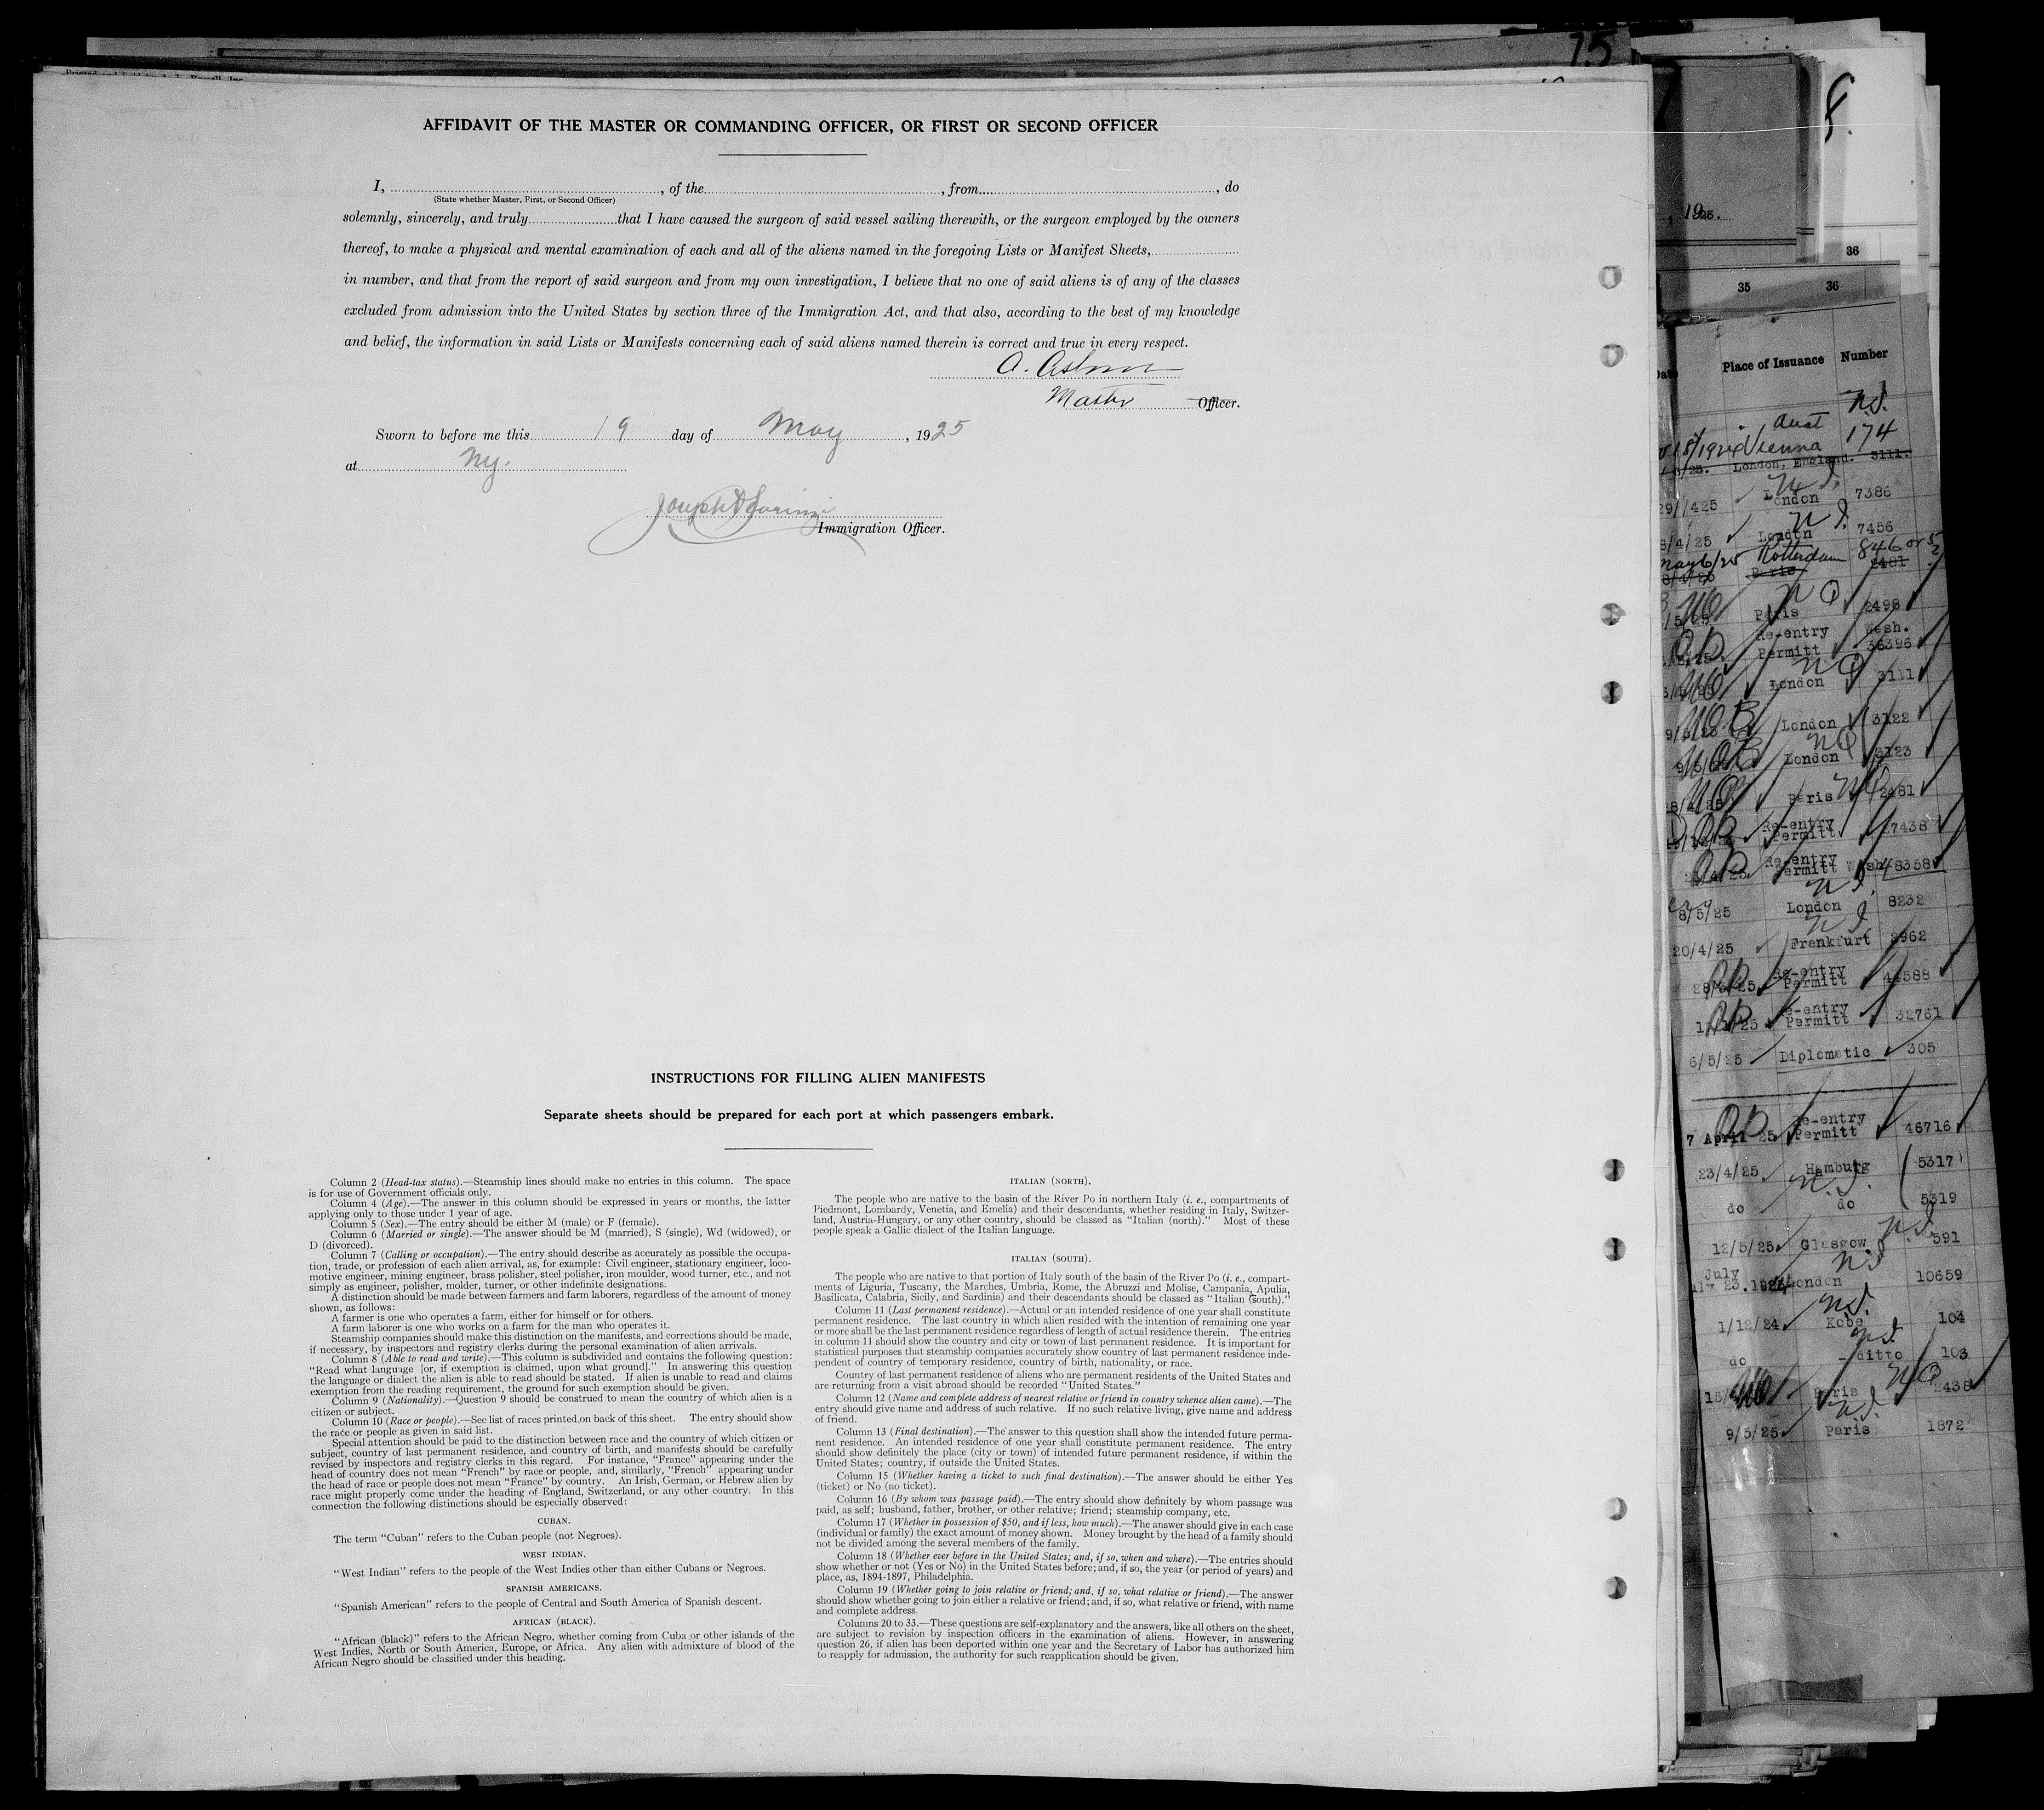 15
8.
AFFIDAVIT OF THE MASTER OR COMMANDING OFFICER, OR FIRST OR SECOND OFFICER
I, , of the , from , do
(State whether Master, First, or Second Officer)
solemnly, sincerely, and truly that I have caused the surgeon of said vessel sailing therewith, or the surgeon employed by the owners
thereof, to make a physical and mental examination of each and all of the aliens named in the foregoing Lists or Manifest Sheets,
in number, and that from the report of said surgeon and from my own investigation, I believe that no one of said aliens is of any of the classes
excluded from admission into the United States by section three of the Immigration Act, and that also, according to the best of my knowledge
and belief, the information in said Lists or Manifests concerning each of said aliens named therein is correct and true in every respect.
A.
Master Officer.
Sworn to before me this 19 day of May, 1925
at NY.
Joseph
Immigration Officer.
INSTRUCTIONS FOR FILLING ALIEN MANIFESTS
Separate sheets should be prepared for each port at which passengers embark.
Column 2 (Head-tax status).—Steamship lines should make no entries in this column. The space
is for use of Government officials only.
Column 4 (Age).—The answer in this column should be expressed in years or months, the latter
applying only to those under 1 year of age.
Column 5 (Sex).—The entry should be either M (male) or F (female).
Column 6 (Married or single).—The answer should be M (married), S (single), Wd (widowed), or
D (divorced).
Column 7 (Calling or occupation).—The entry should describe as accurately as possible the occupa-
tion, trade, or profession of each alien arrival, as, for example: Civil engineer, stationary engineer, loco-
motive engineer, mining engineer, brass polisher, steel polisher, iron moulder, wood turner, etc., and not
simply as engineer, polisher, molder, turner, or other indefinite designations.
A distinction should be made between farmers and farm laborers, regardless of the amount of money
shown, as follows:
A farmer is one who operates a farm, either for himself or for others.
A farm laborer is one who works on a farm for the man who operates it.
Steamship companies should make this distinction on the manifests, and corrections should be made,
if necessary, by inspectors and registry clerks during the personal examination of alien arrivals.
Column 8 (Able to read and write).—This column is subdivided and contains the following question:
“Read what language [or, if exemption is claimed, upon what ground].” In answering this question
the language or dialect the alien is able to read should be stated. If alien is unable to read and claims
exemption from the reading requirement, the ground for such exemption should be given.
Column 9 (Nationality).—Question 9 should be construed to mean the country of which alien is a
citizen or subject.
Column 10 (Race or people).—See list of races printed on back of this sheet. The entry should show
the race or people as given in said list.
Special attention should be paid to the distinction between race and the country of which citizen or
subject, country of last permanent residence, and country of birth, and manifests should be carefully
revised by inspectors and registry clerks in this regard. For instance, “France” appearing under the
head of country does not mean “French” by race or people, and, similarly, “French” appearing under
the head of race or people does not mean “France” by country. An Irish, German, or Hebrew alien by
race might properly come under the heading of England, Switzerland, or any other country. In this
connection the following distinctions should be especially observed:
CUBAN.
The term “Cuban” refers to the Cuban people (not Negroes).
WEST INDIAN.
“West Indian” refers to the people of the West Indies other than either Cubans or Negroes.
SPANISH AMERICANS.
“Spanish American” refers to the people of Central and South America of Spanish descent.
AFRICAN (BLACK).
“African (black)” refers to the African Negro, whether coming from Cuba or other islands of the
West Indies, North or South America, Europe, or Africa. Any alien with admixture of blood of the
African Negro should be classified under this heading.
ITALIAN (NORTH).
The people who are native to the basin of the River Po in northern Italy (i. e., compartments of
Piedmont, Lombardy, Venetia, and Emelia) and their descendants, whether residing in Italy, Switzer-
land, Austria-Hungary, or any other country, should be classed as “Italian (north).” Most of these
people speak a Gallic dialect of the Italian language.
ITALIAN (SOUTH).
The people who are native to that portion of Italy south of the basin of the River Po (i. e., compart-
ments of Liguria, Tuscany, the Marches, Umbria, Rome, the Abruzzi and Molise, Campania, Apulia,
Basilicata, Calabria, Sicily, and Sardinia) and their descendants should be classed as “Italian (south).”
Column 11 (Last permanent residence).—Actual or an intended residence of one year shall constitute
permanent residence. The last country in which alien resided with the intention of remaining one year
or more shall be the last permanent residence regardless of length of actual residence therein. The entries
in column 11 should show the country and city or town of last permanent residence. It is important for
statistical purposes that steamship companies accurately show country of last permanent residence inde-
pendent of country of temporary residence, country of birth, nationality, or race.
Country of last permanent residence of aliens who are permanent residents of the United States and
are returning from a visit abroad should be recorded “United States.”
Column 12 (Name and complete address of nearest relative or friend in country whence alien came).—The
entry should give name and address of such relative. If no such relative living, give name and address
of friend.
Column 13 (Final destination).—The answer to this question shall show the intended future perma-
nent residence. An intended residence of one year shall constitute permanent residence. The entry
should show definitely the place (city or town) of intended future permanent residence, if within the
United States; country, if outside the United States.
Column 15 (Whether having a ticket to such final destination).—The answer should be either Yes
(ticket) or No (no ticket).
Column 16 (By whom was passage paid).—The entry should show definitely by whom passage was
paid, as self; husband, father, brother, or other relative; friend; steamship company, etc.
Column 17 (Whether in possession of $50, and if less, how much).—The answer should give in each case
(individual or family) the exact amount of money shown. Money brought by the head of a family should
not be divided among the several members of the family.
Column 18 (Whether ever before in the United States; and, if so, when and where).—The entries should
show whether or not (Yes or No) in the United States before; and, if so, the year (or period of years) and
place, as, 1894-1897, Philadelphia.
Column 19 (Whether going to join relative or friend; and, if so, what relative or friend).—The answer
should show whether going to join either a relative or friend; and, if so, what relative or friend, with name
and complete address.
Columns 20 to 33.—These questions are self-explanatory and the answers, like all others on the sheet,
are subject to revision by inspection officers in the examination of aliens. However, in answering
question 26, if alien has been deported within one year and the Secretary of Labor has authorized him
to reapply for admission, the authority for such reapplication should be given.
, 1925.
36
35 36
Date Place of Issuance Number
N.I.
Aust
18/1924 Vienna 174
/25. London, England. 3111.
29/425 London 7386
8/4/25 London 7456
May 6/25 Rotterdam 846 or 5
8/4/25 Paris 2481
5/25 Paris 2498
Re-entry Permitt Wash. 36396
London 3111
London 3122
London 3123
8/4/25 Paris 2481
Re-entry Permitt 27438
Re-entry Permitt Wash 48358
8/5/25 London 8232
20/4/25 Frankfurt 2962
Re-entry Permitt 44588
Re-entry Permitt 32761
6/5/25 Diplomatic 305
7 April 25 Re-entry Permitt 46716
23/4/25 Hamburg 5317
do do 5319
12/5/25 Glasgow 591
July 23.1924 London 10659
1/12/24 Kobe 104
do ditto 103
Paris 2438
9/5/25 Paris 1872